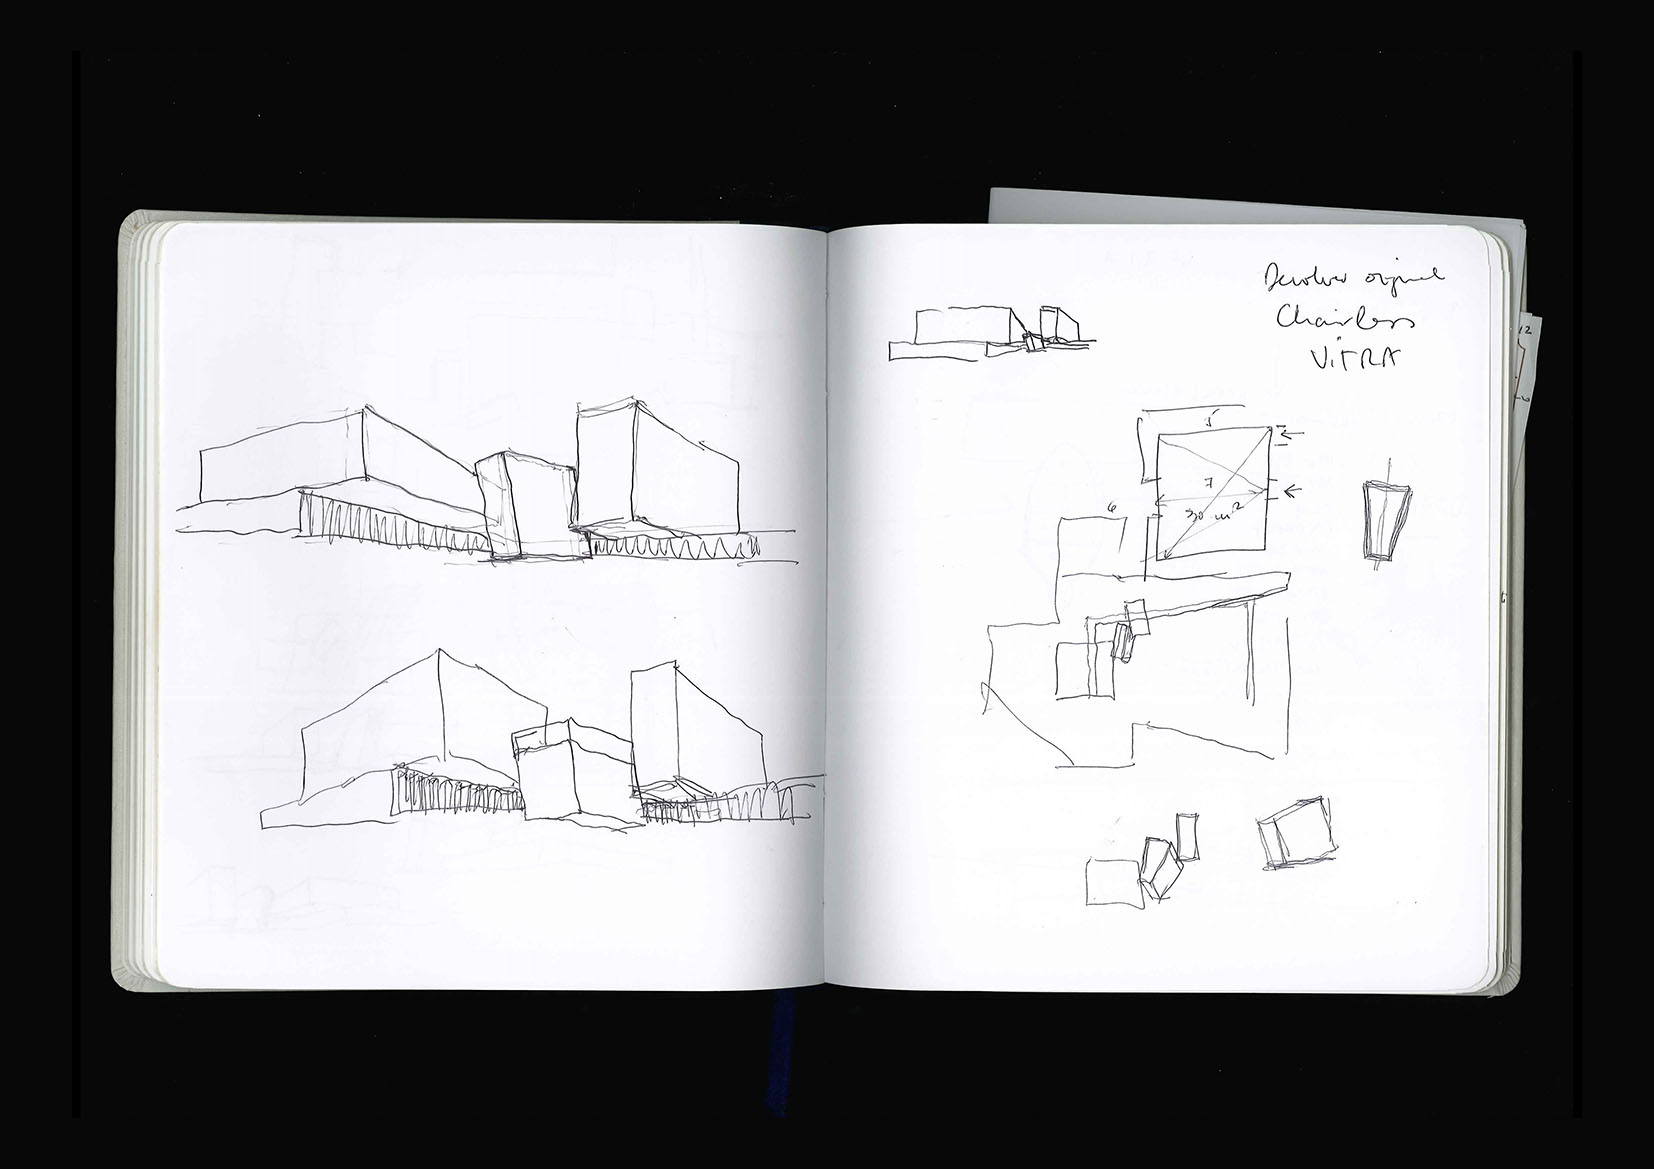 Devolver original
Chairless
ViTRA
5
7
30 m²
6
12